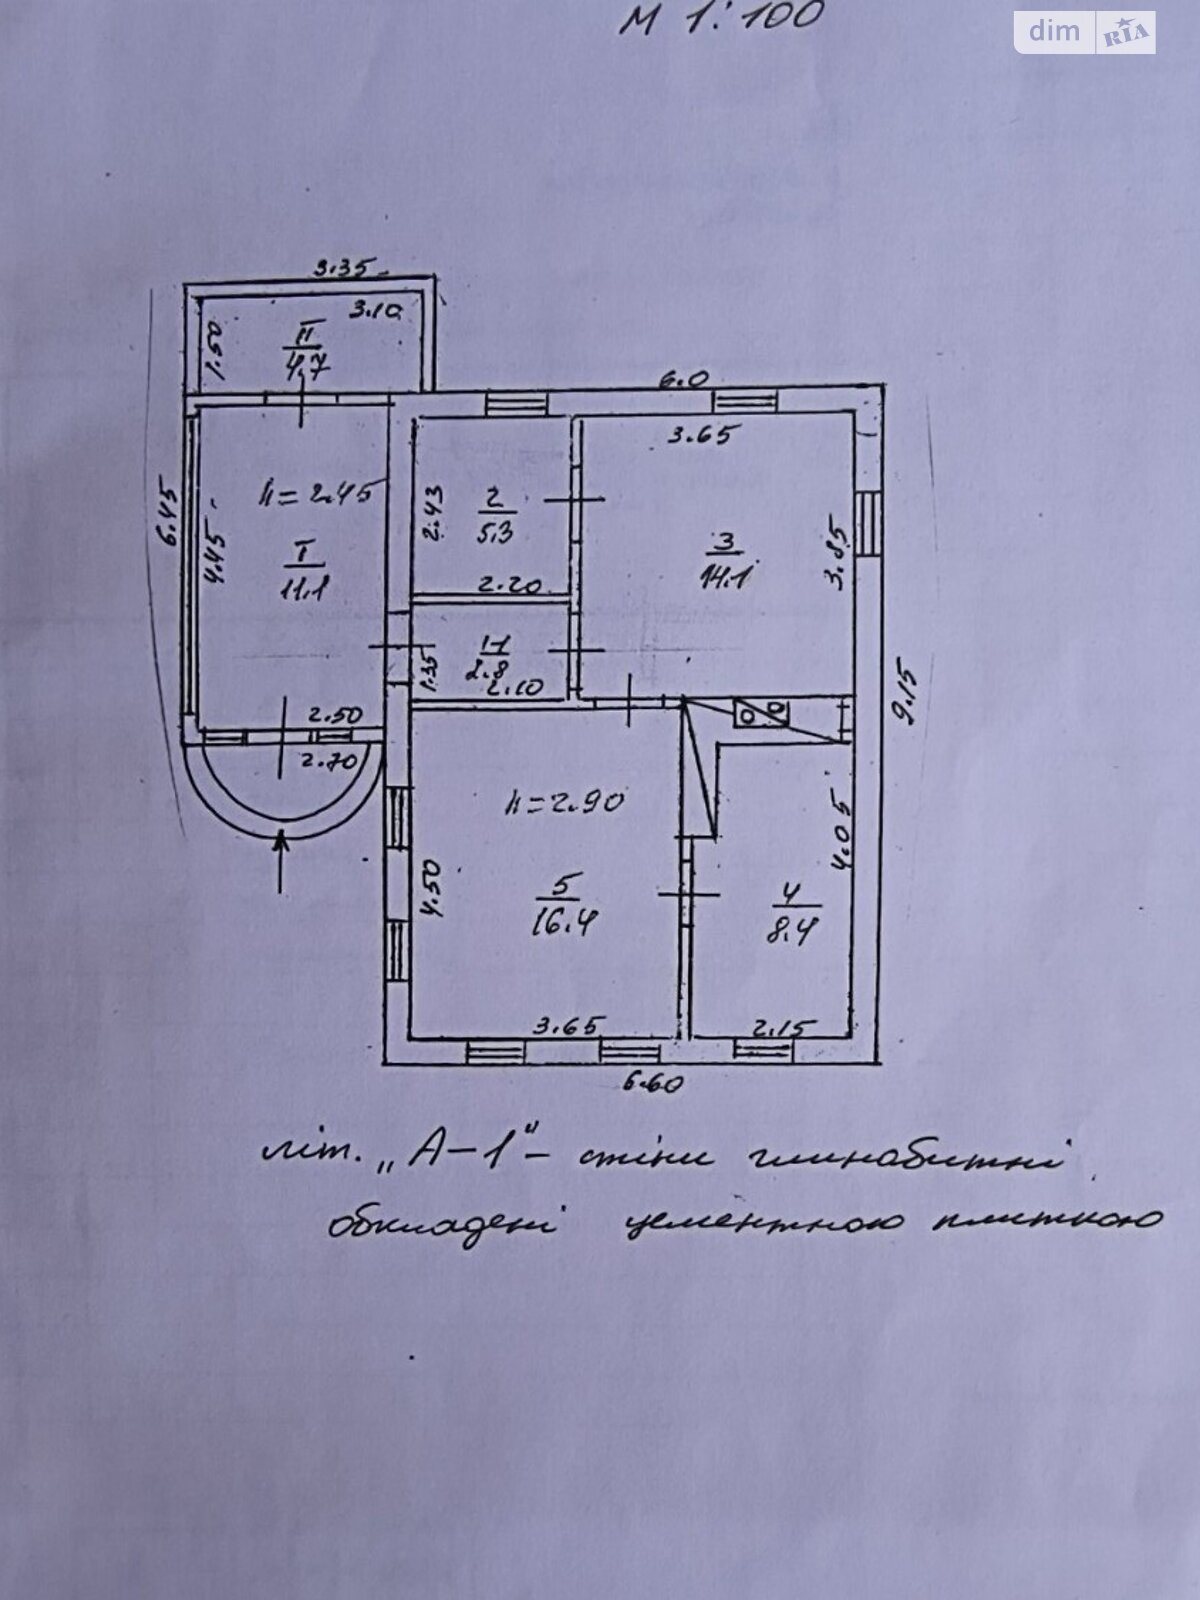 М 1:100
dim RIA
3.35
3.10
1.50
II
4,7
6.0
3.65
h=2.45
6.45
4.45
I
11.1
2.43
2
5.3
2.20
3
14.1
3.85
1-1
2.8
1.35
2.10
9.15
2.50
2.70
h=2.90
4.50
5
16.4
4.05
4
8.4
3.65
2.15
6.60
літ. „А-1" - стіни глинобитні
обкладені цементною плиткою